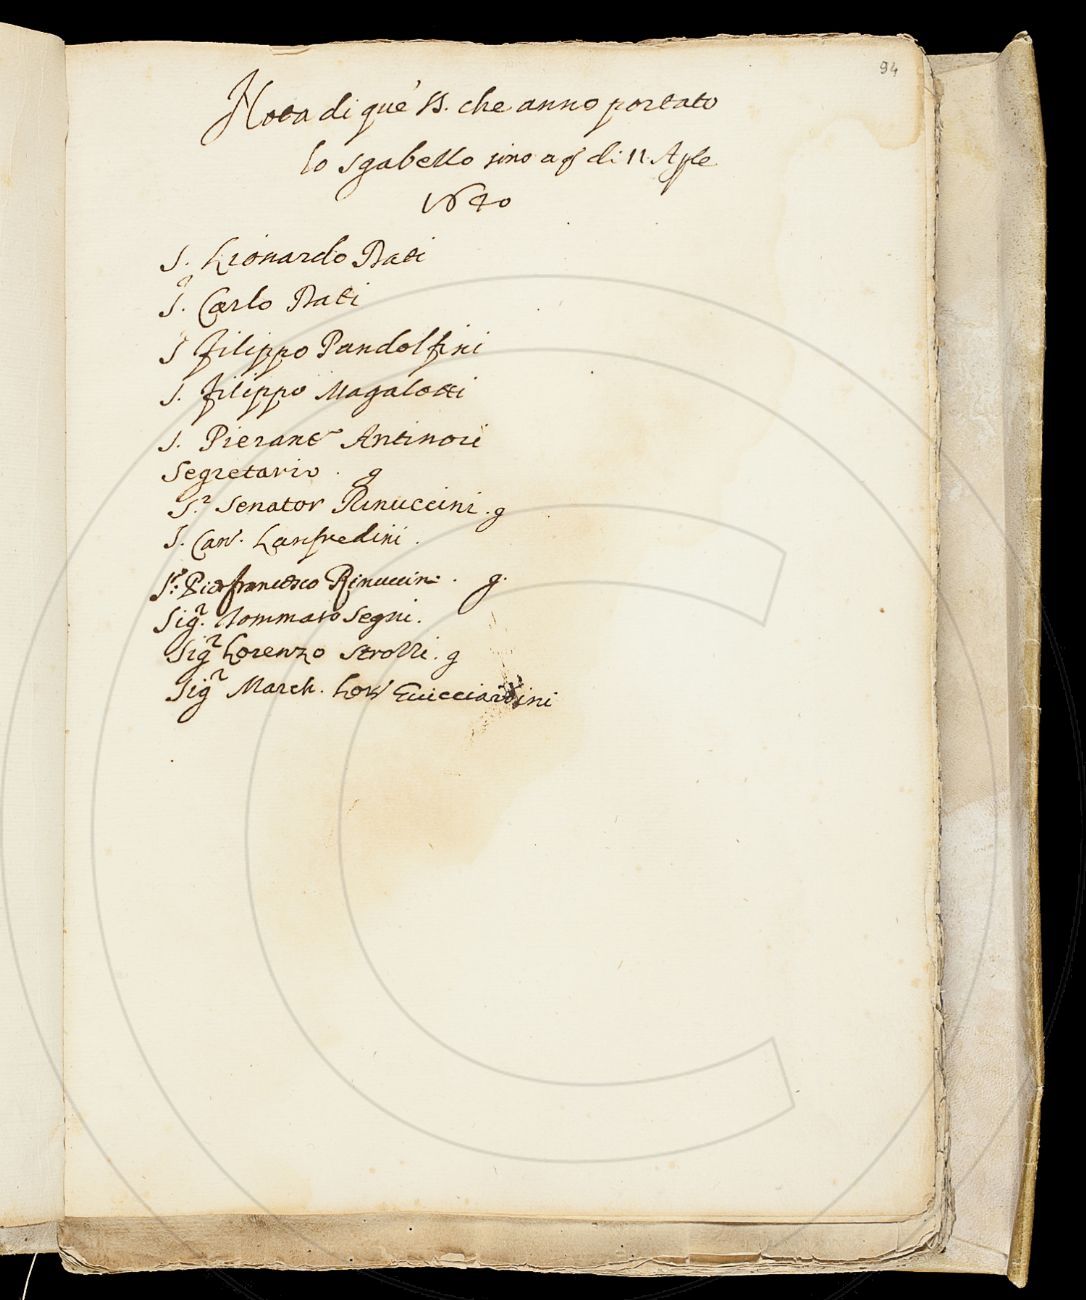 94
Nota di que' SS. che anno portato
lo sgabello sino a q.o di 11. Aple
1640
S. Lionardo Dati
S. Carlo Dati
S. Filippo Pandolfini
S. Filippo Magalotti
S. Pierant.o Antinori
Segretario . g
S.r Senator Rinuccini . g
S. Cav. Lanfredini .
S.r Pierfrancesco Rinuccini . g.
Sig.r Tommaso Segni .
Sig.r Lorenzo Strozzi . g
Sig.r March. Guicciardini